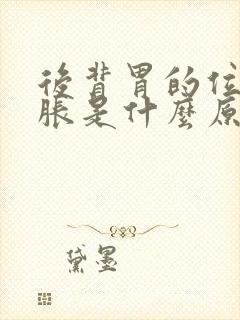 後背胃的位
脹是什麼原
黛墨